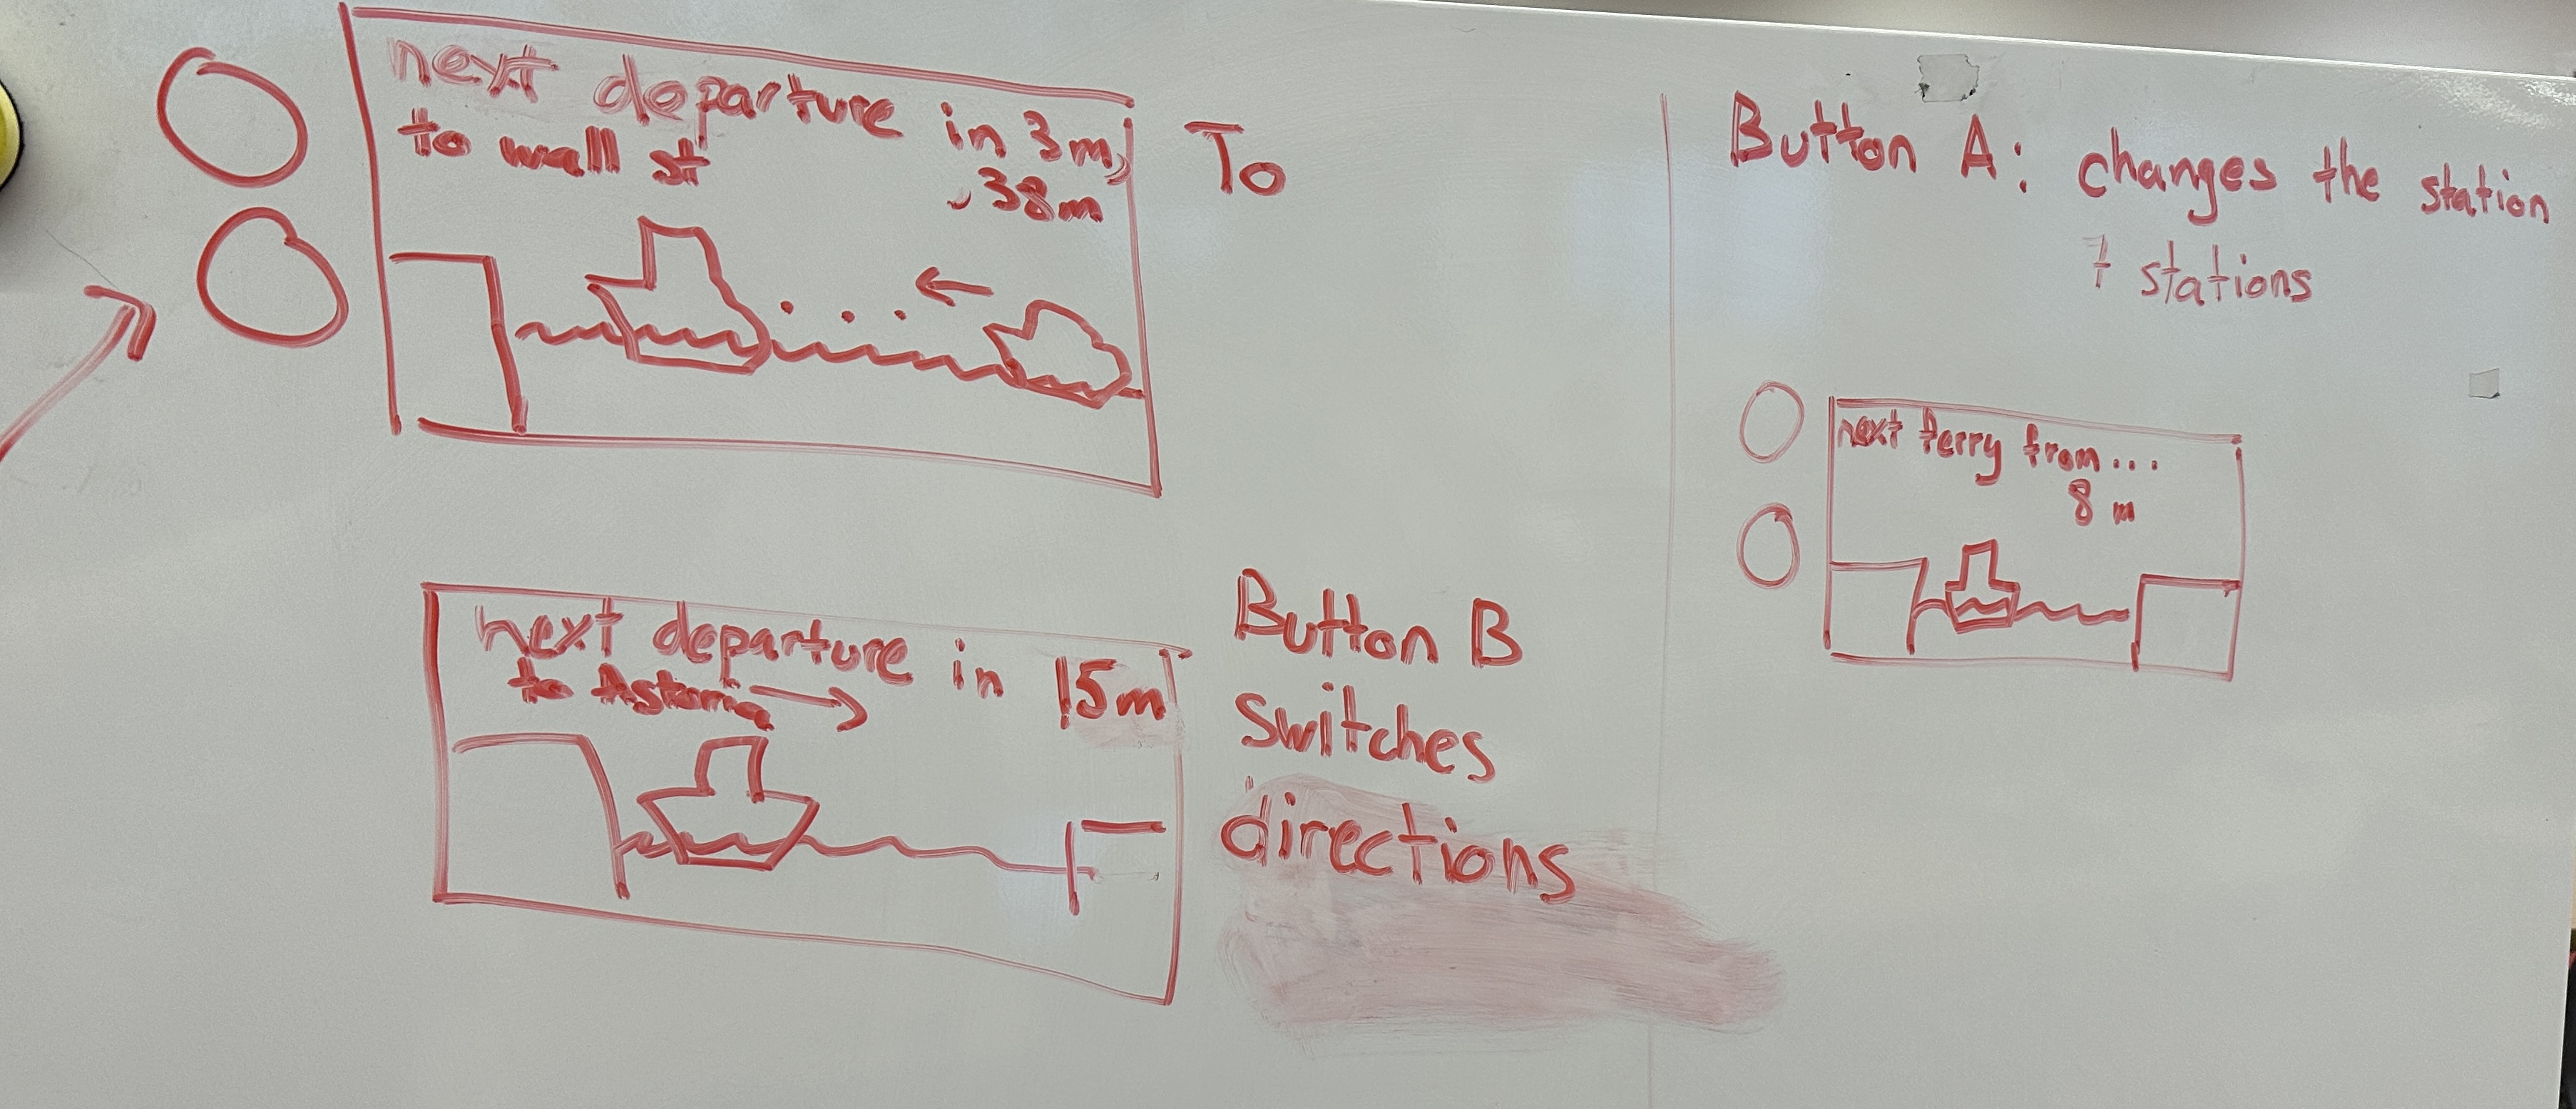 next departure in 3m,
to wall st
, 38m
To
next departure in 15m
to Astoria
Button B
switches
directions
Button A: changes the station
7 stations
next ferry from...
8 m